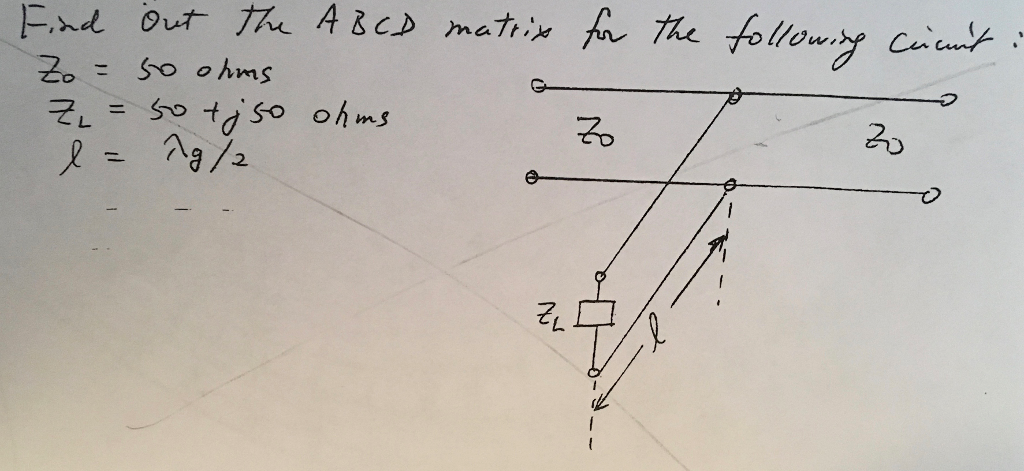 Find out the ABCD matrix for the following circuit :
Z₀ = 50 ohms
Z_L = 50 + j50 ohms
l = λg/2
Z₀
Z₀
Z_L
l